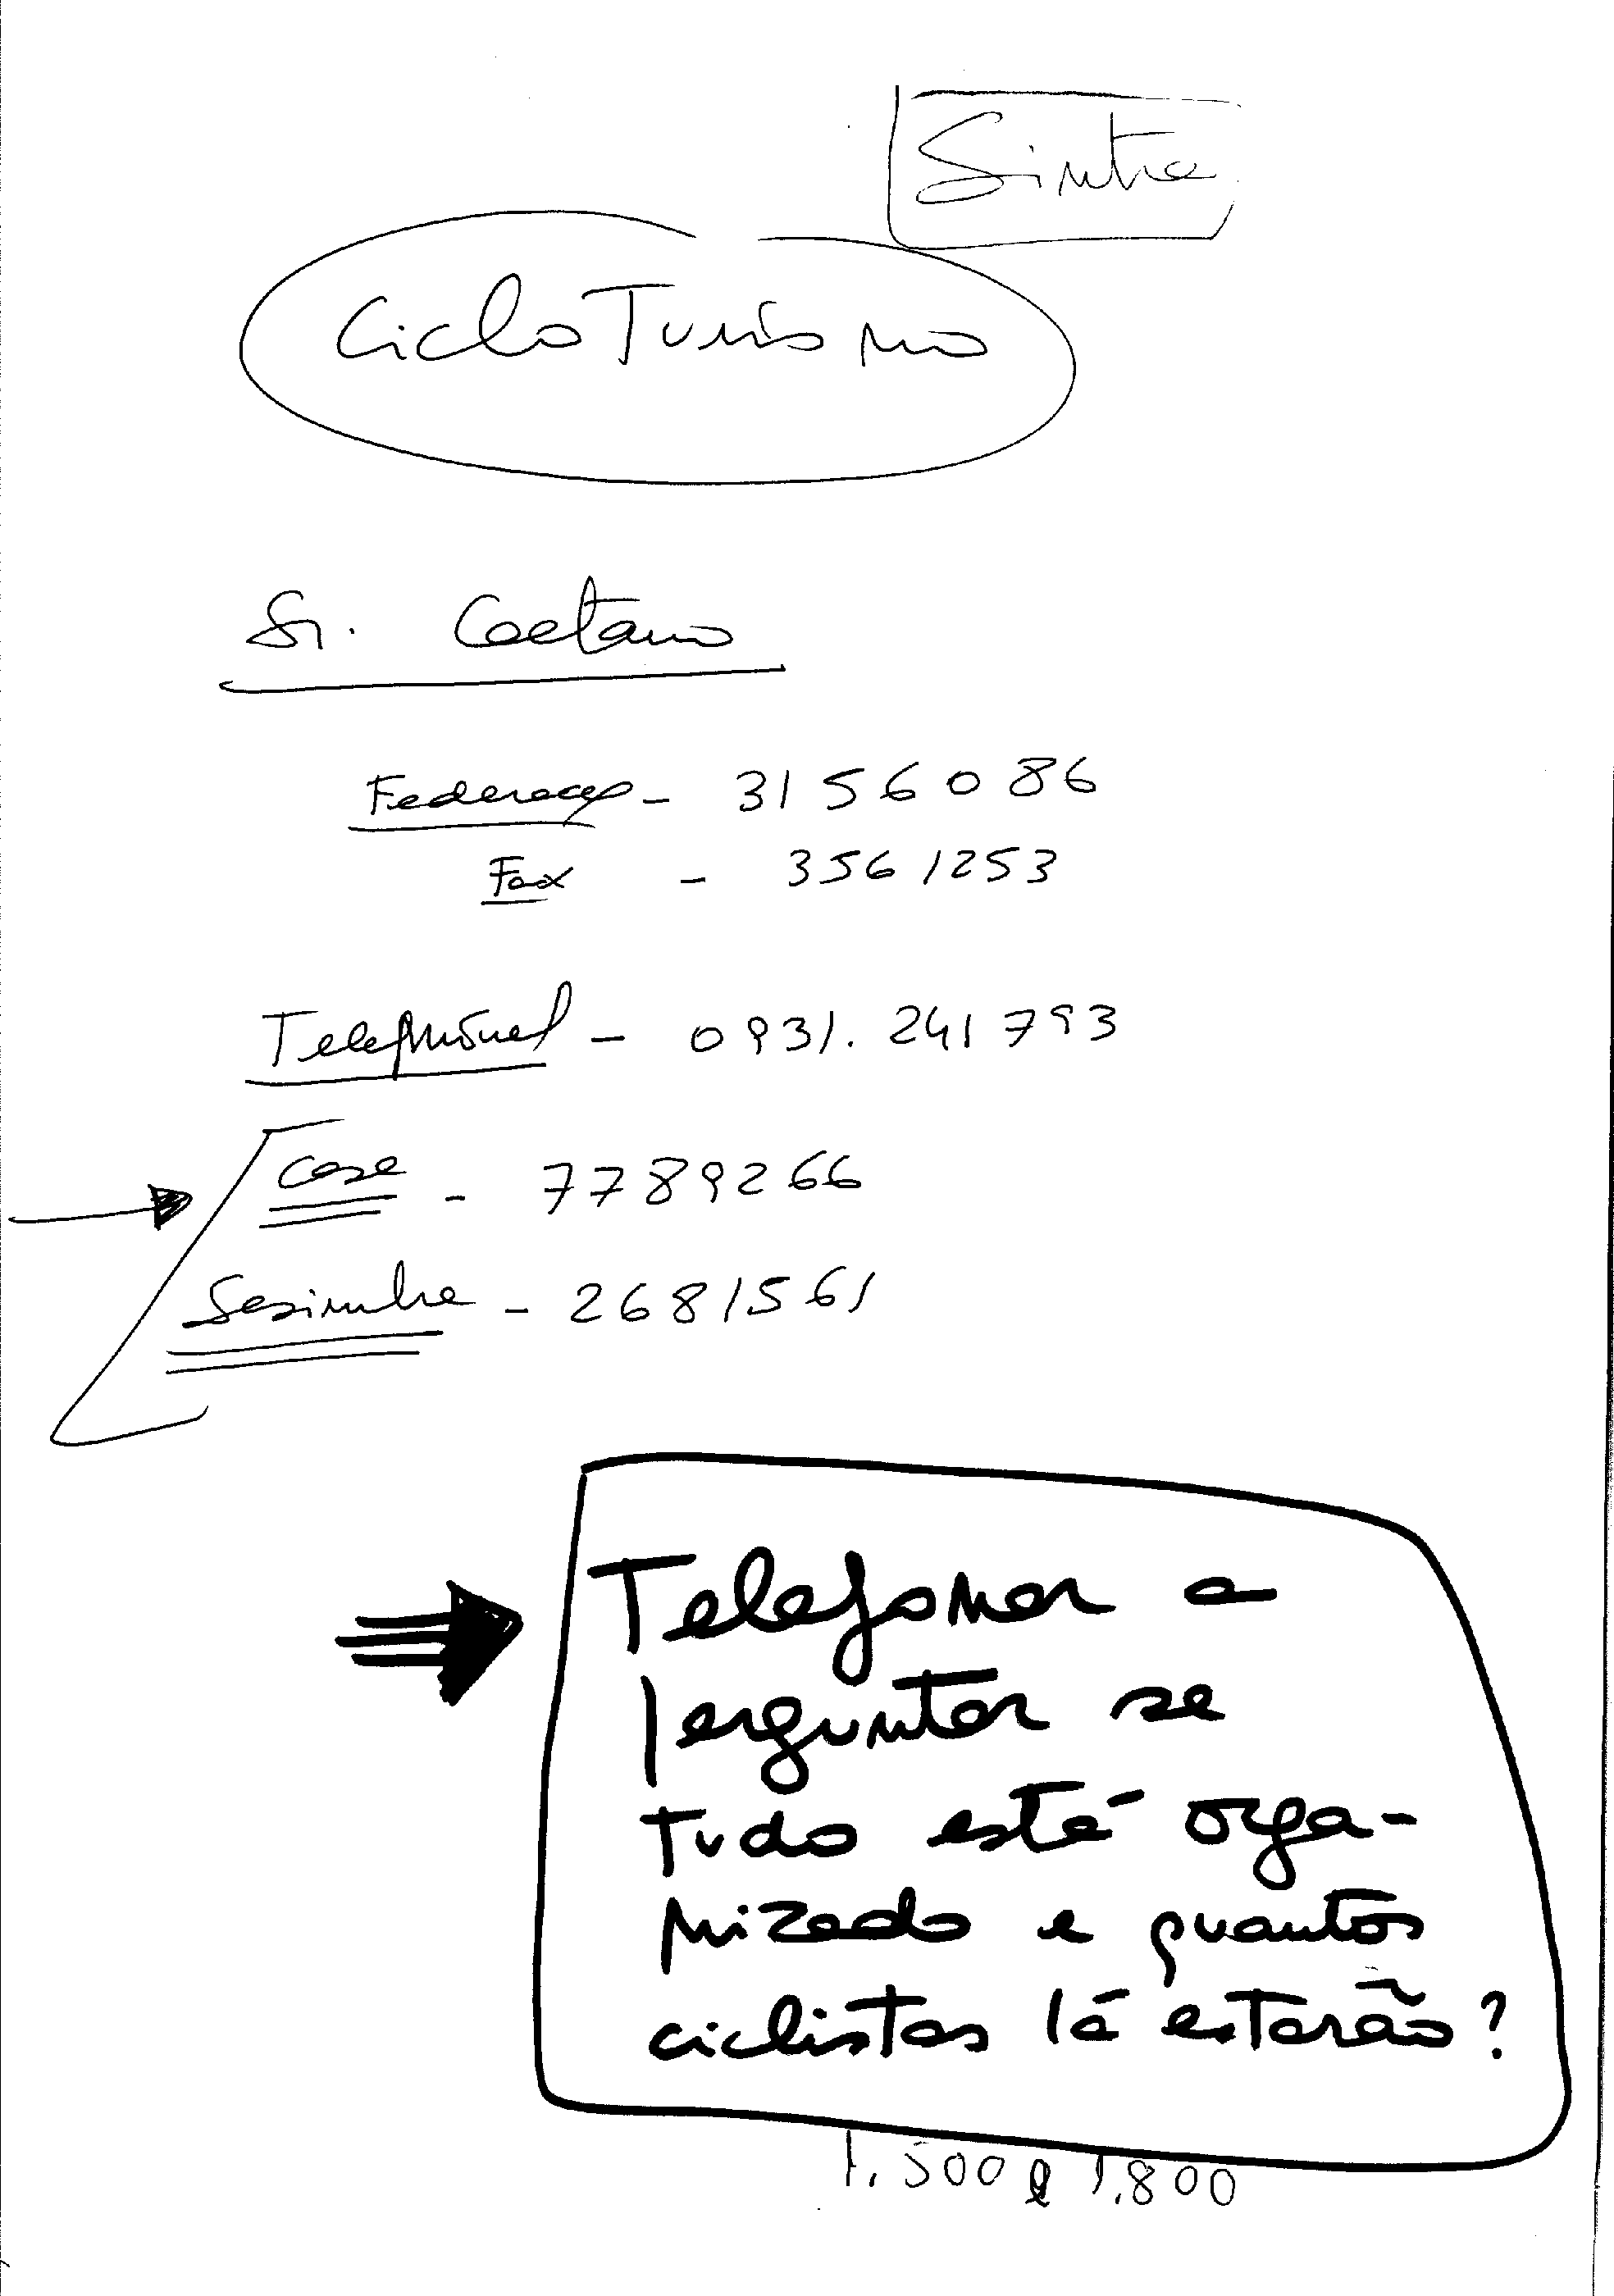 Sintra
CicloTurismo
Sr. Caetano
Federação - 3156086
Fax - 3561253
Telemóvel - 0931.241793
Casa - 7789266
Sesimbra - 2681561
Telefonar a
perguntar se
tudo está orga-
nizado e quantos
ciclistas lá estarão?
1.500 e 1.800